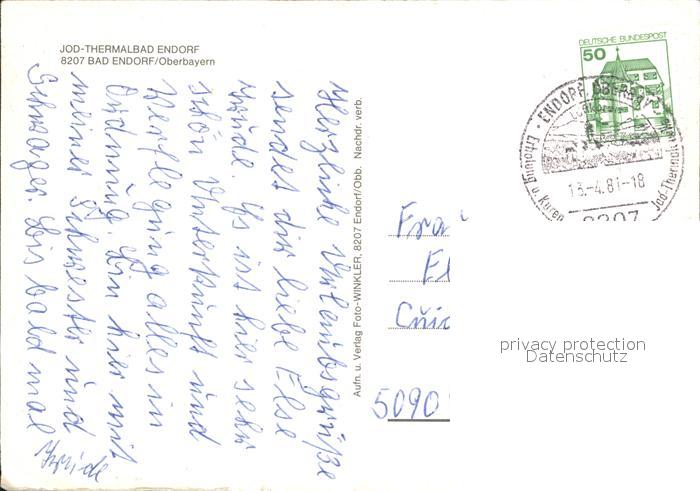 JOD-THERMALBAD ENDORF
8207 BAD ENDORF/Oberbayern
Herzliche Urlaubsgrüße
sendet dir liebe Else
Es ist hier sehr
schön Unterkunft und
Verpflegung alles in
Ordnung. Bin hier mit
meiner Schwester und
Schwager. Bis bald mal
Aufn. u. Verlag Foto-WINKLER, 8207 Endorf/Obb. Nachdr. verb.
DEUTSCHE BUNDESPOST
50
ENDORF, OBERBAY
Erholung u. Kuren
Jod-Thermal
13.-4.81-18
8207
Fra
El
5090
privacy protection
Datenschutz